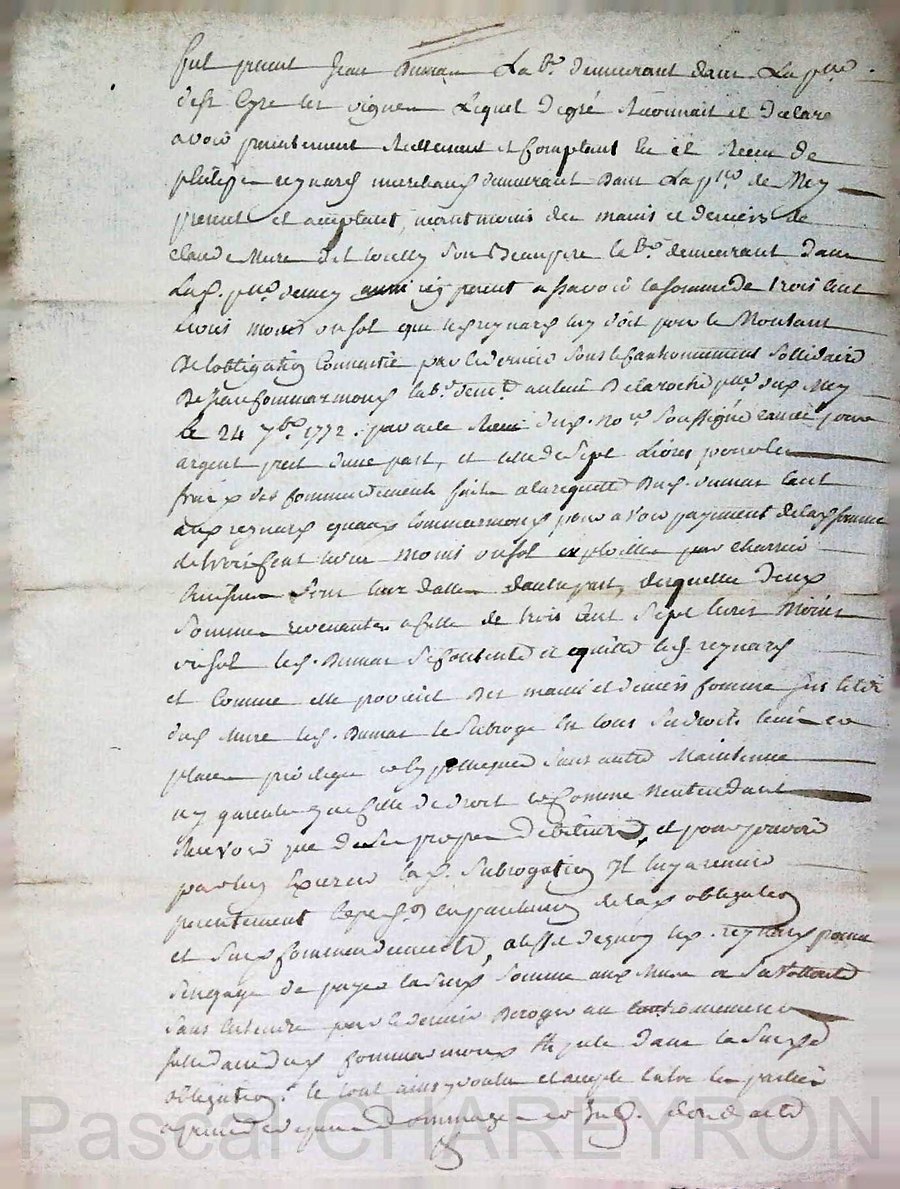 fut present Jean Dumas Lab.r demeurant dans La p.sse
d'est Cyre les vignes Lequel de gré Reconnait et declare
avoir presentement Reellement et Comptant eu et Receu de
philipe reynard marchand demeurant dans La p.sse de Mey
present et acceptant, neantmoins des mains et deniers de
claude Mure dit Son Beaupere lab.r demeurant dans
Lad. p.sse demey aussi icy present a savoir la somme de trois cent
livres moins un sol que led reynard luy doit pour le Montant
De lobligation Consentie par le dernier sous le Cautionnement Sollidaire
De Jean Commarmond lab.r dem.t au lieu De laroche p.sse dud Mey
le 24 7.bre 1772. par acte Receu dud. No.re Soussigné causée pour
argent prest d'une part, et celle de Sept Livres pour les
fraix des Commandements faits a la requette Dud. dumas tant
aud reynard quaud Commarmond pour avoir payement de lad somme
de trois Cent livres Moins un sol exploittés par Charrin
huissier Sous leur datte dautre part, desquelles deux
Sommes revenantes a Celle de trois Cent Sept livres Moins
un sol led. Dumas Se Contente et quitte led. reynard
et Comme elle provient Des mains et deniers Comme sus est dit
dud Mure led. Dumas le Subroge En tous Ses droits lieu et
place privilege et hypotheque Sans autre Maintenue
ny garentie que Celle de droit et Comme Nentendant
Recevoir que de Ses propres debiteurs, et pour pouvoir
par luy Exercer lad. Subrogation Il luy a remis
presentement lexped.on en parchemin de lad obligation
et Susd Commandements, au de quoy led. reynard promet
Sengage de payer la Susd Somme aud Mure a Sa Volonté
Sans Entendre par le dernier Deroger au Cautionnement
sollidaire dud Commarmond stipulé dans la Susd
obligation. le tout ainsy voulu et accepté Entre les parties
a peine de tous dommages et Int. dont acte
Pascal CHAREYRON